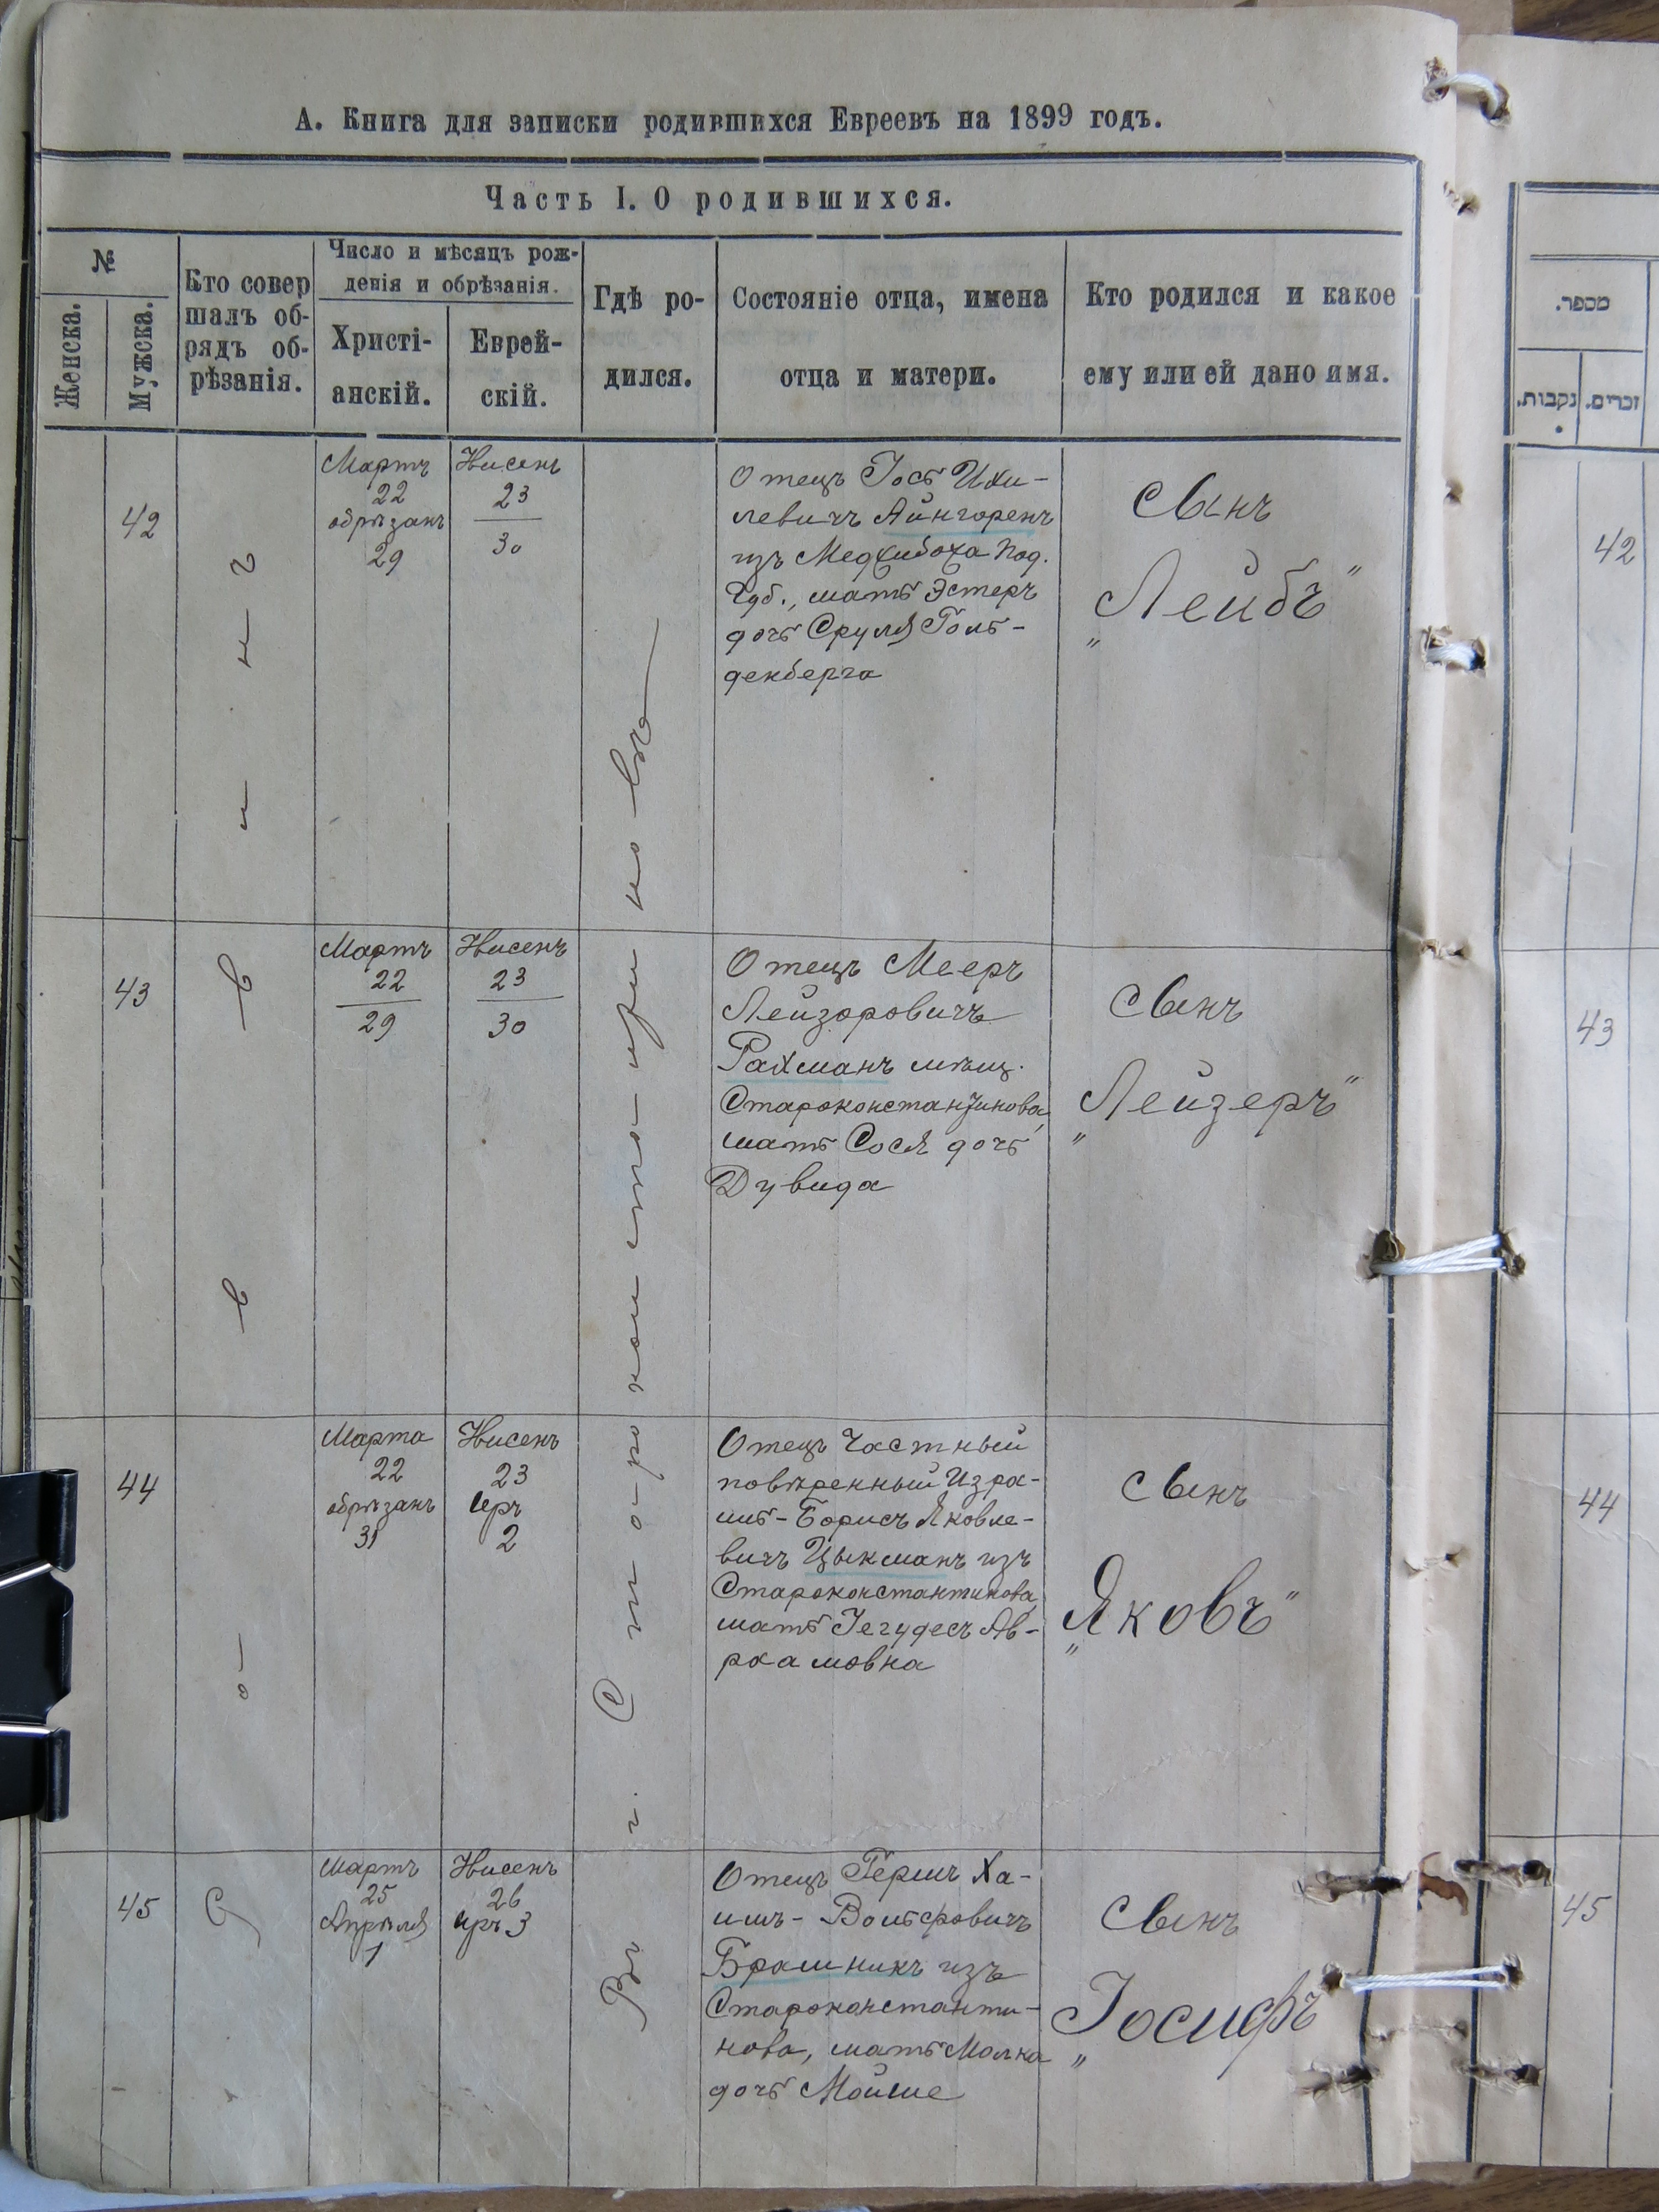 А. Книга для записки родившихся Евреевъ на 1899 годъ.
Часть I. О родившихся.
№
Женска.
Мужска.
Кто совер
шалъ об-
рядъ об-
рѣзанія.
Число и мѣсяцъ рож-
денія и обрѣзанія.
Христі-
анскій.
Еврей-
скій.
Гдѣ ро-
дился.
Состояніе отца, имена
отца и матери.
Кто родился и какое
ему или ей дано имя.
מספר.
נקבות.
זכרים.
Въ г. Староконстантиновъ
42
Мартъ
22
обрѣзанъ
29
Нисенъ
23
30
Отецъ Іось Ихи-
левичъ Айнгоренъ
изъ Меджибожа Под.
Губ., мать Эстеръ
дочь Сруля Голь-
денберга
Сынъ
„Лейбъ"
42
43
Мартъ
22
29
Нисенъ
23
30
Отецъ Мееръ
Лейзоровичъ
Рахманъ мѣщ.
Староконстантинова,
мать Сося дочь
Дувида
Сынъ
„Лейзеръ"
43
44
Марта
22
обрѣзанъ
31
Нисенъ
23
Иръ
2
Отецъ Частный
повѣренный Изра-
иль-Борисъ Яковле-
вичъ Цыкманъ изъ
Староконстантинова,
мать Іегудесъ Ав-
раамовна
Сынъ
„Яковъ"
44
45
Мартъ
25
Апрѣля
1
Нисенъ
26
Иръ 3
Отецъ Гершъ Ха-
имъ-Вольфовичъ
Брашникъ изъ
Староконстанти-
нова, мать Малка
дочь Мойше
Сынъ
„Іосифъ
45